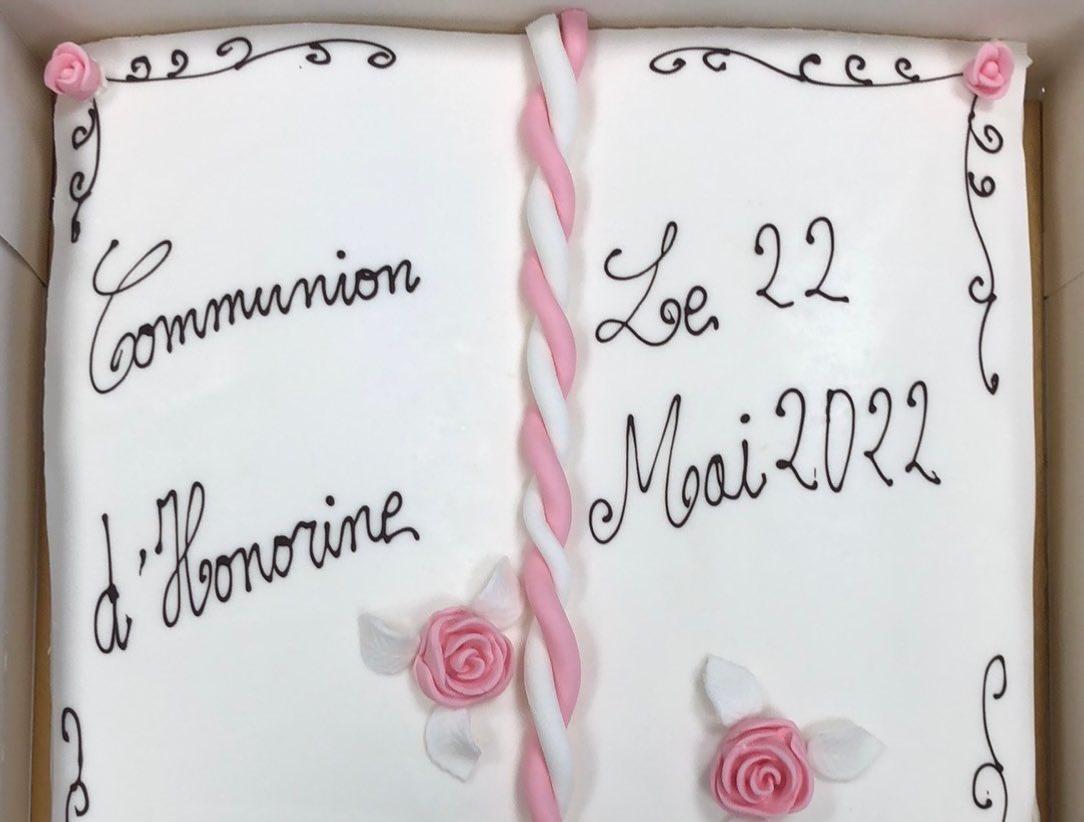 Communion
d'Honorine
Le 22
Mai 2022